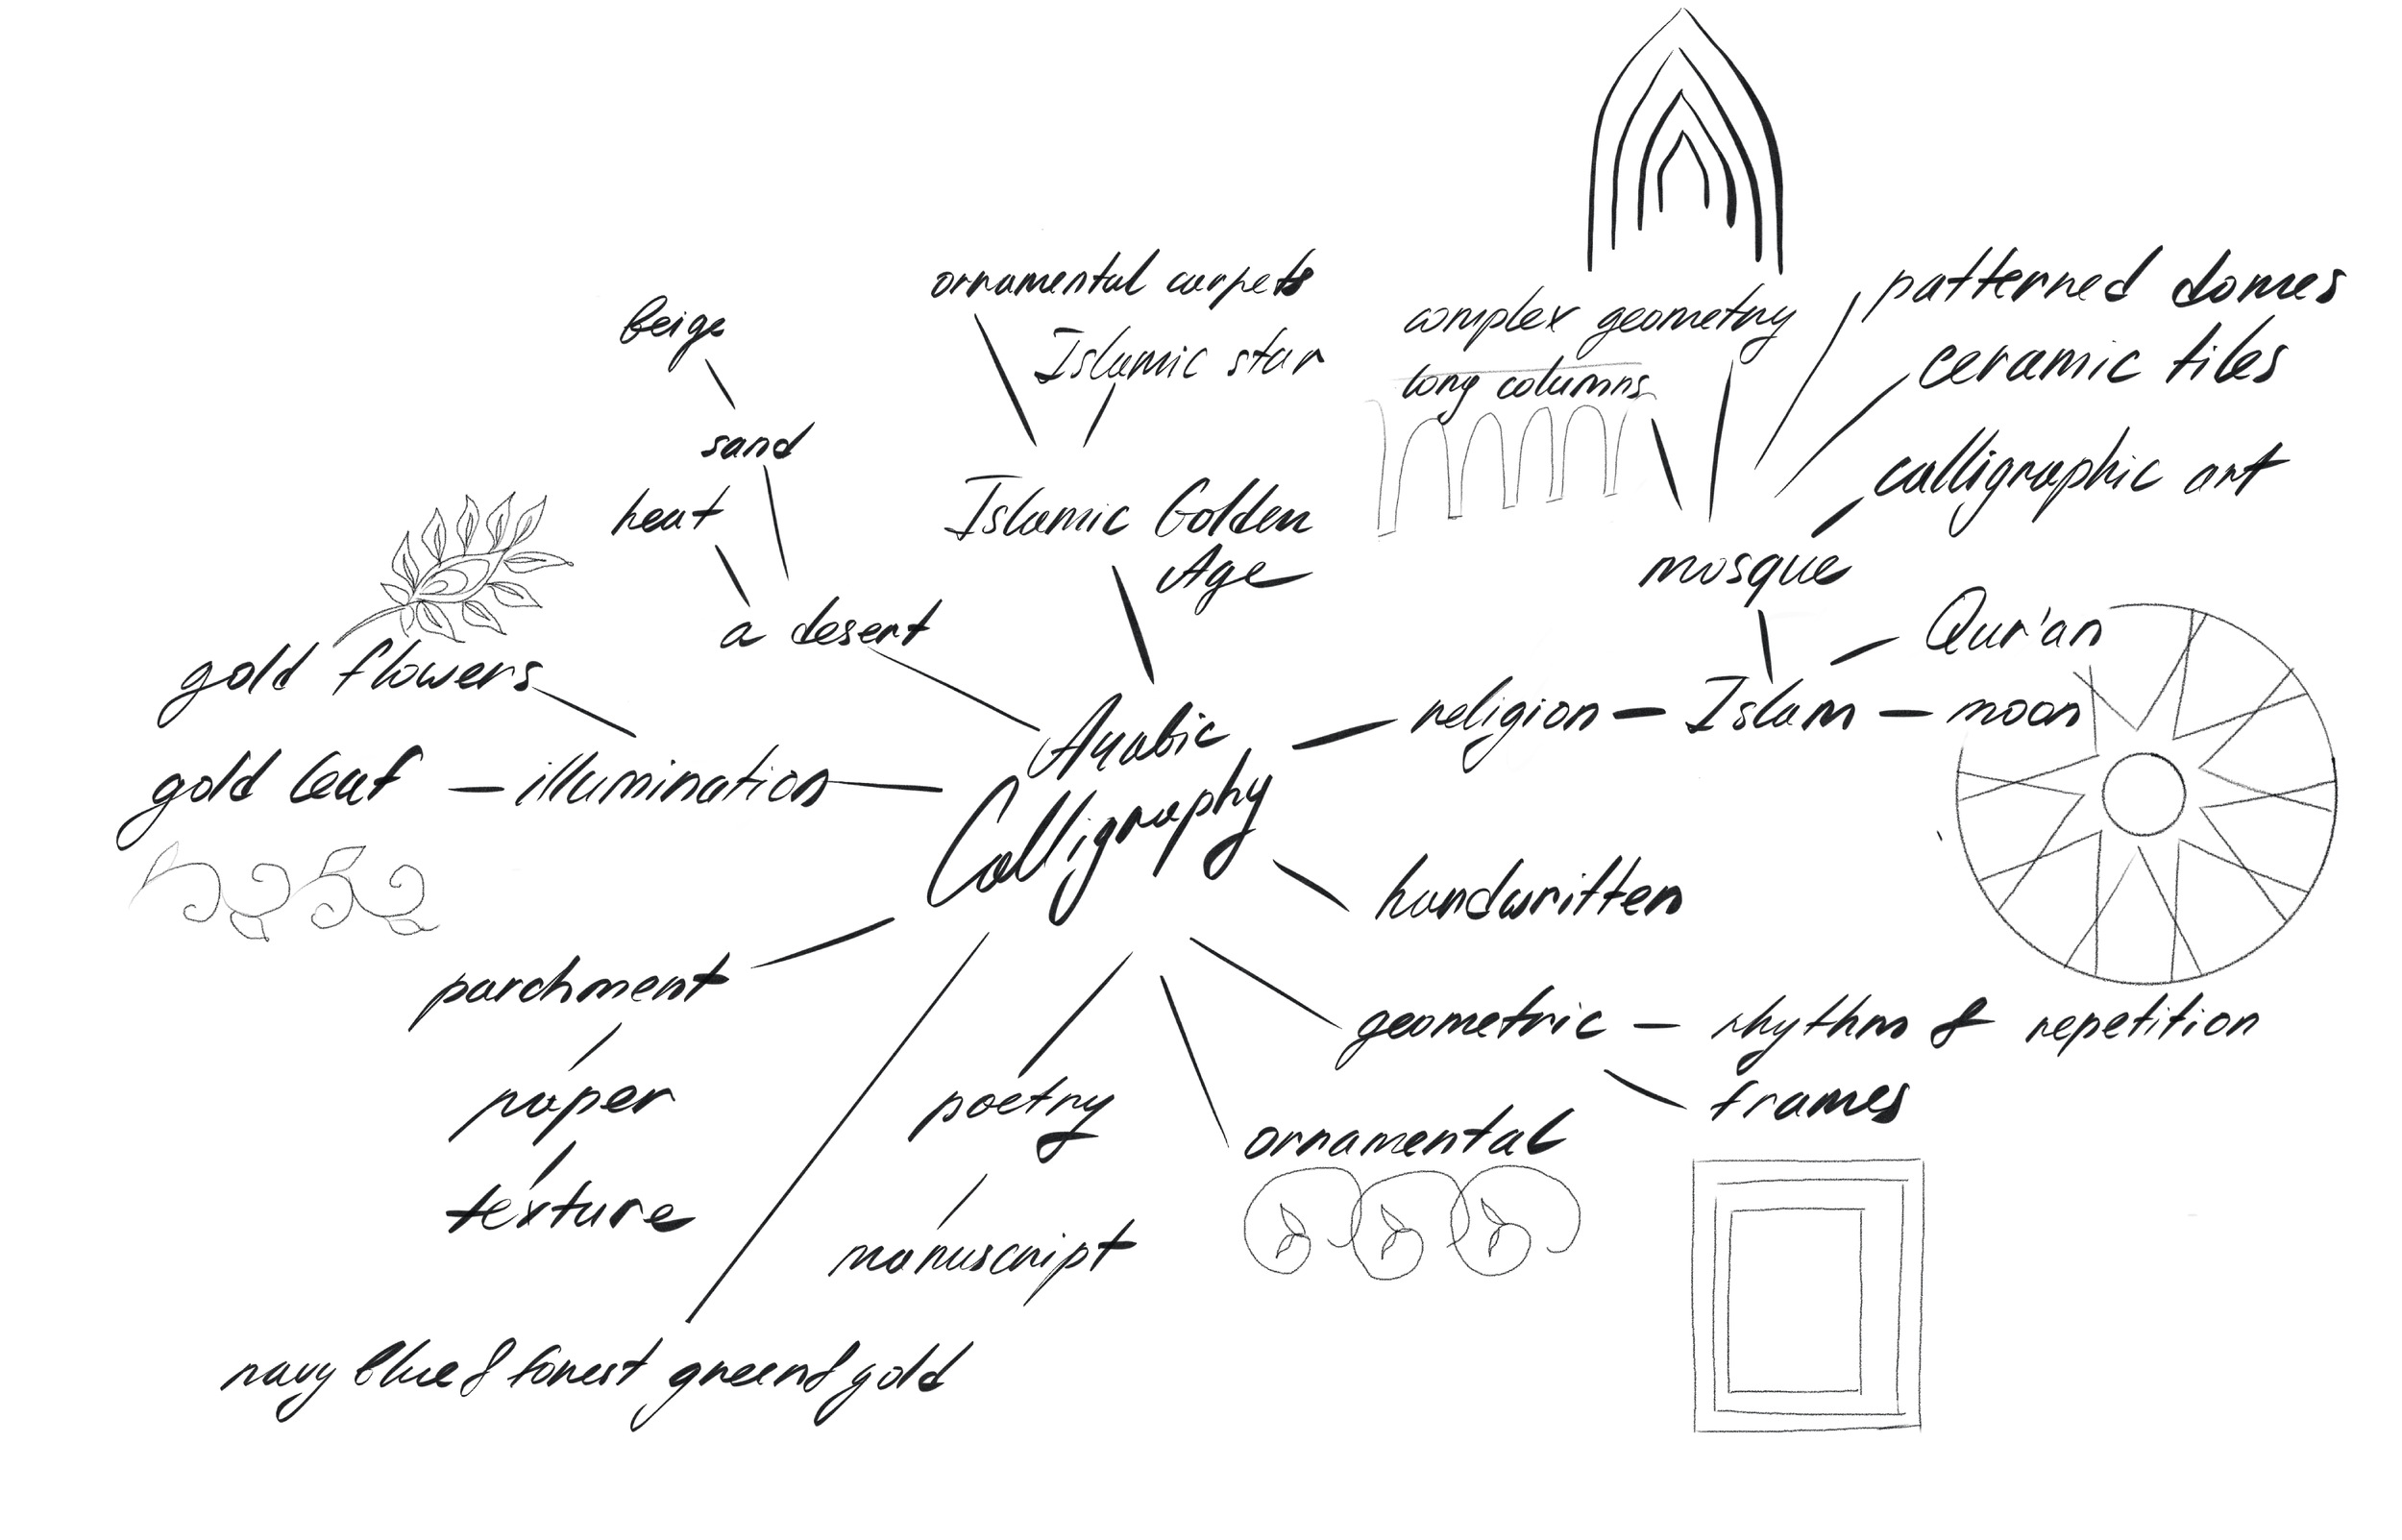 ornamental carpets
Islamic star
beige
complex geometry
long columns
patterned domes
ceramic tiles
calligraphic art
sand
heat
Islamic Golden
Age
mosque
a desert
Qur'an
gold flowers
religion – Islam – moon
Arabic
Calligraphy
gold leaf – illumination
handwritten
parchment
geometric – rhythm & repetition
frames
paper
poetry
ornamental
texture
manuscript
navy blue & forest green & gold